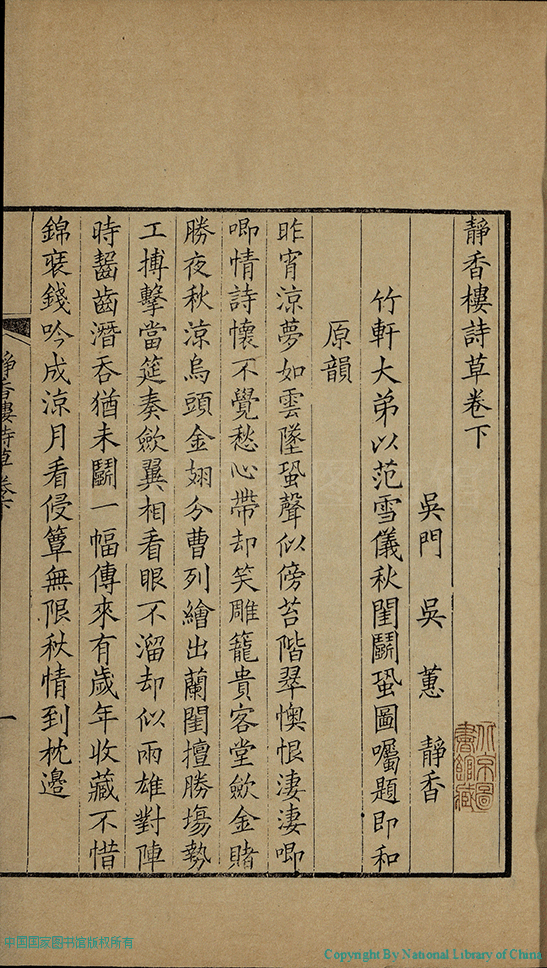 靜香樓詩草卷下
吳門 吳蕙 靜香
竹軒大弟以范雪儀秋閨鬭蛩圖囑題即和
原韻
昨宵涼夢如雲墜蛩聲似傍苔階翠懊恨淒淒唧
唧情詩懷不覺愁心帶却笑雕籠貴客堂歛金賭
勝夜秋涼烏頭金翅分曹列繪出蘭閨擅勝場勢
工搏擊當筵奏歛翼相看眼不溜却似兩雄對陣
時齧齒潛吞猶未鬭一幅傳來有歲年收藏不惜
錦裝錢吟成涼月看侵簟無限秋情到枕邊
靜香樓詩草 卷下
一
北京圖書館藏
中国国家图书馆版权所有
Copyright By National Library of China